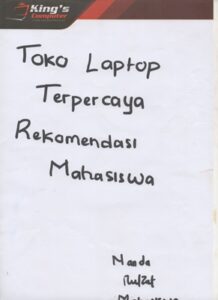 King's
Computer
Toko Laptop
Terpercaya
Rekomendasi
Mahasiswa
Nanda